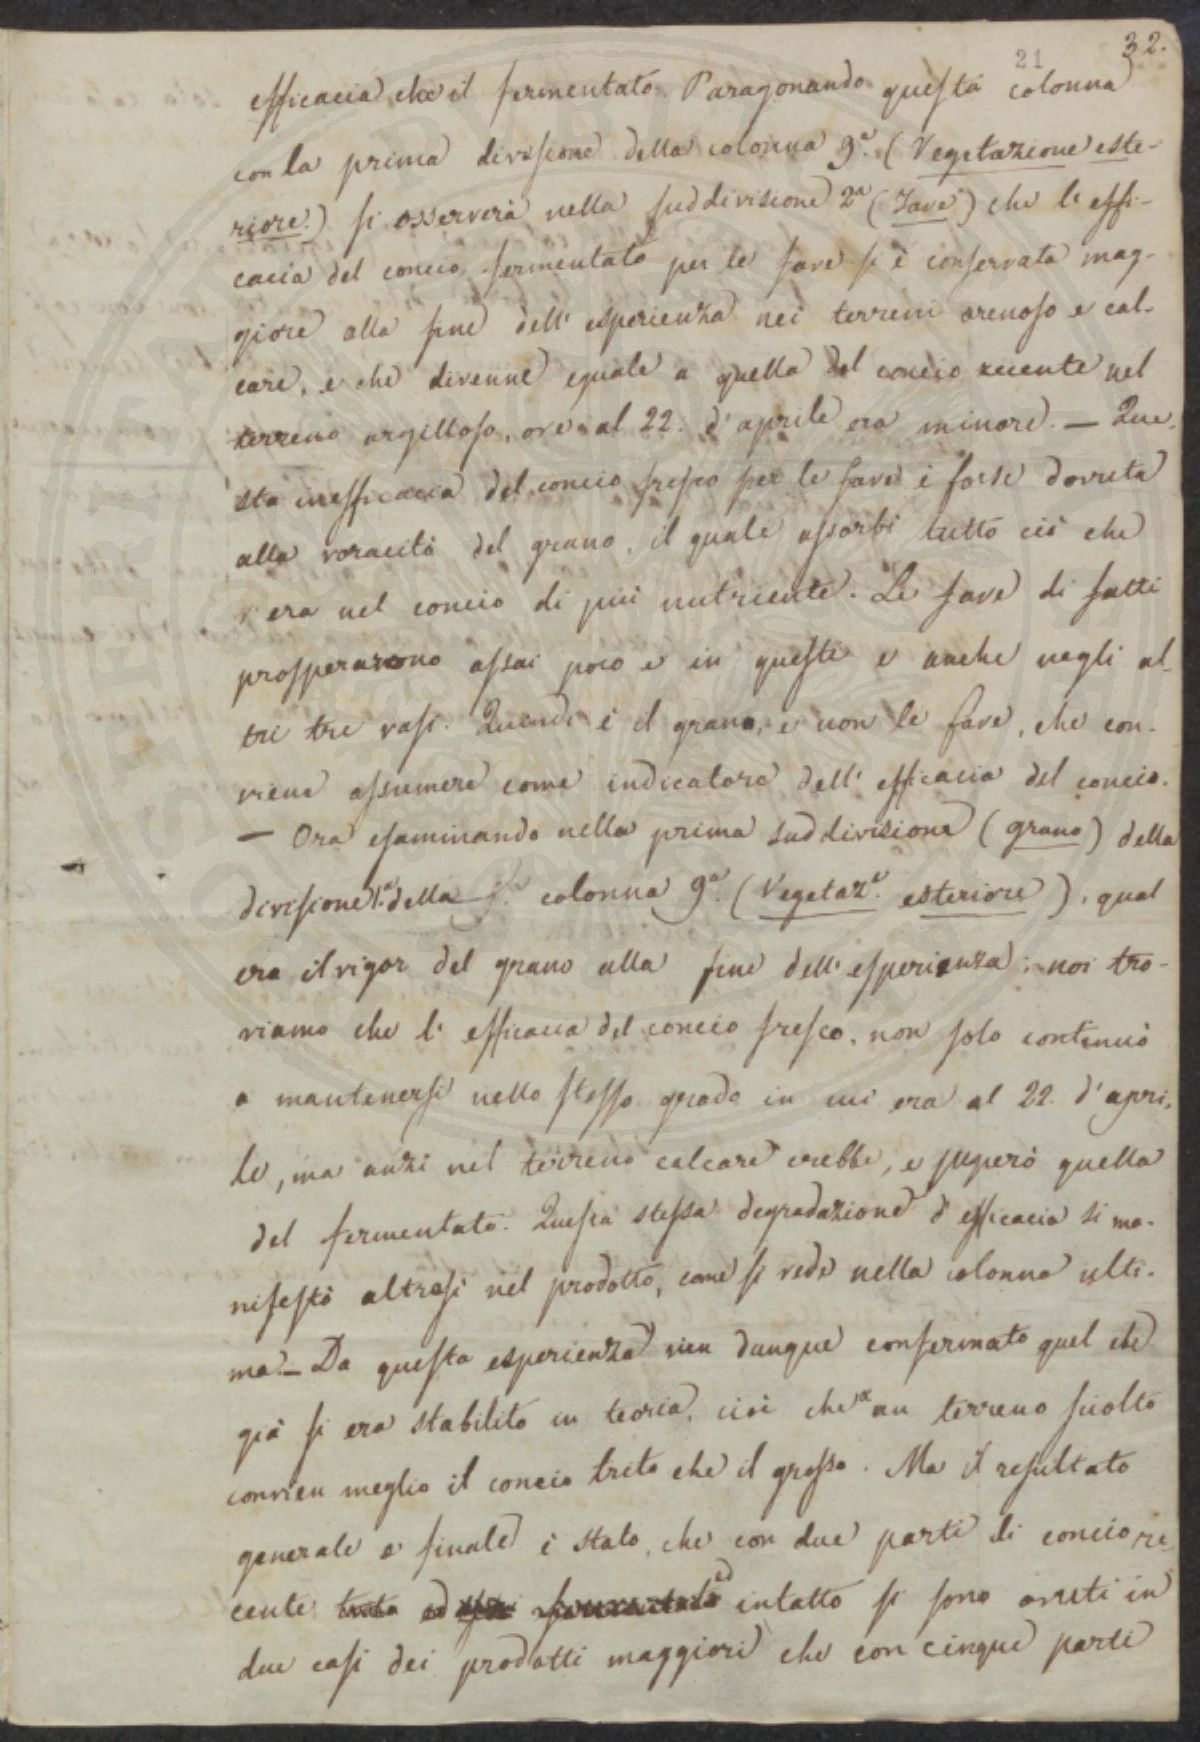 21 32.
efficacia che il fermentato. Paragonando questa colonna
con la prima divisione della colonna 9ª. (Vegetazione este-
riore.) si osserverà nella suddivisione 2ª (Fave) che l'effi-
cacia del concio fermentato per le fave si è conservata mag-
giore alla fine dell'esperienza nei terreni arenoso e cal-
care, e che divenne eguale a quella del concio recente nel
terreno argilloso, ove al 22. d'aprile era minore. — Que-
sta inefficacia del concio fresco per le fave è forse dovuta
alla voracità del grano, il quale assorbì tutto ciò che
v'era nel concio di più nutriente. Le fave di fatti
prosperarono assai poco e in questi e anche negli al-
tri tre vasi. Quindi è il grano, e non le fave, che con-
viene assumere come indicatore dell'efficacia del concio.
— Ora esaminando nella prima suddivisione (grano) della
divisione 1ª della colonna 9ª. (Vegetazᵉ. esteriore), qual
era il vigor del grano alla fine dell'esperienza; noi tro-
viamo che l'efficacia del concio fresco, non solo continuò
a mantenersi nello stesso grado in cui era al 22. d'apri-
le, ma anzi nel terreno calcare crebbe, e superò quella
del fermentato. Questa stessa degradazione d'efficacia si ma-
nifestò altresì nel prodotto, come si vede nella colonna ulti-
ma. — Da questa esperienza vien dunque confermato quel che
già si era stabilito in teoria, cioè che a un terreno sciolto
convien meglio il concio trito che il grosso. Ma il resultato
generale e finale è stato, che con due parti di concio re-
cente trito ed intatto si sono avuti in
due casi dei prodotti maggiori che con cinque parti